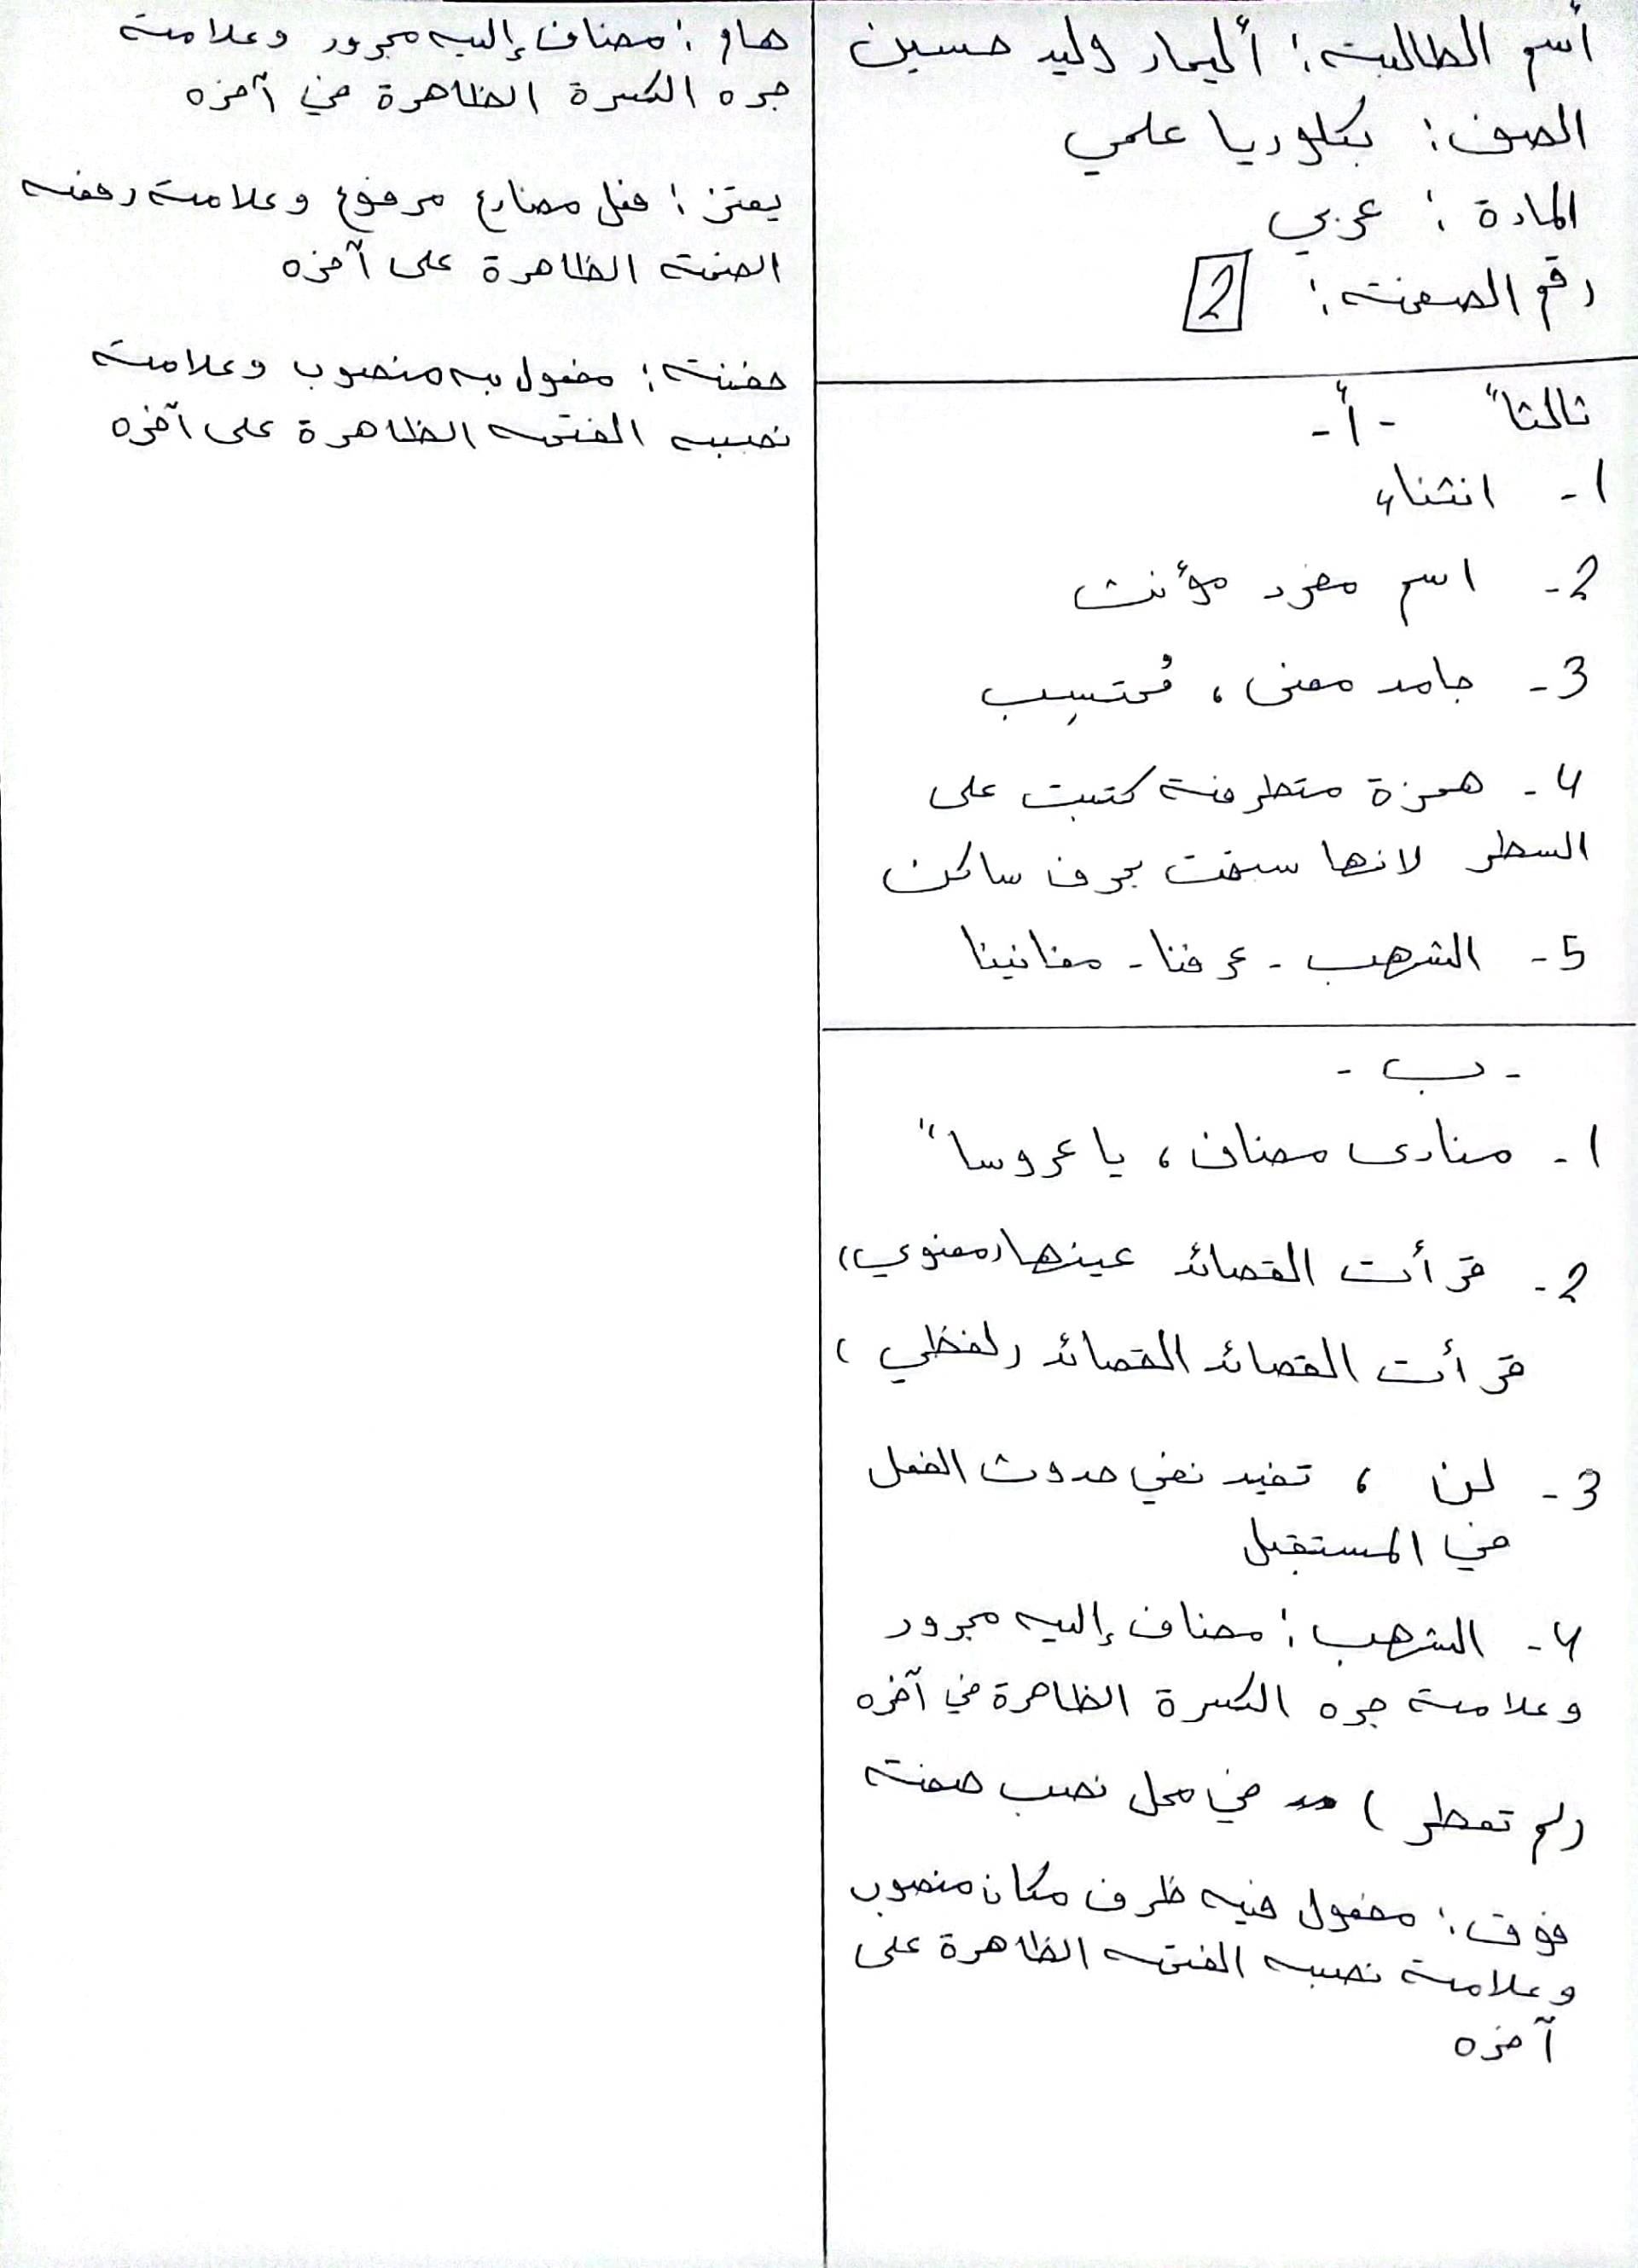 أسم الطالبة: أليمار وليد حسين
الصف: بكلوريا علمي
المادة: عربي
رقم الصفحة: 2
ثالثا" -أ-
1- انثناء
2- اسم مفرد مؤنث
3- جامد معنى، مُحتسِب
4- همزة متطرفة كتبت على
السطر لانها سبقت بحرف ساكن
5- الشهب - عرفنا - مغانينا
- ب -
1- منادى مضاف، يا عروسا"
2- قرأت القصائد عينها (معنوي)
قرأت القصائد القصائد (لفظي)
3- لن، تفيد نفي حدوث الفعل
في المستقبل
4- الشهب: مضاف إليه مجرور
وعلامة جره الكسرة الظاهرة في آخره
(لم تمطر) في محل نصب صفة
فوق: مفعول فيه ظرف مكان منصوب
وعلامة نصبه الفتحه الظاهرة على
آخره
هام: مضاف إليه مجرور وعلامة
جره الكسرة الظاهرة في آخره
يعتز: فعل مضارع مرفوع وعلامة رفعه
الضمة الظاهرة على آخره
حفنة: مفعول به منصوب وعلامة
نصبه الفتحه الظاهرة على آخره